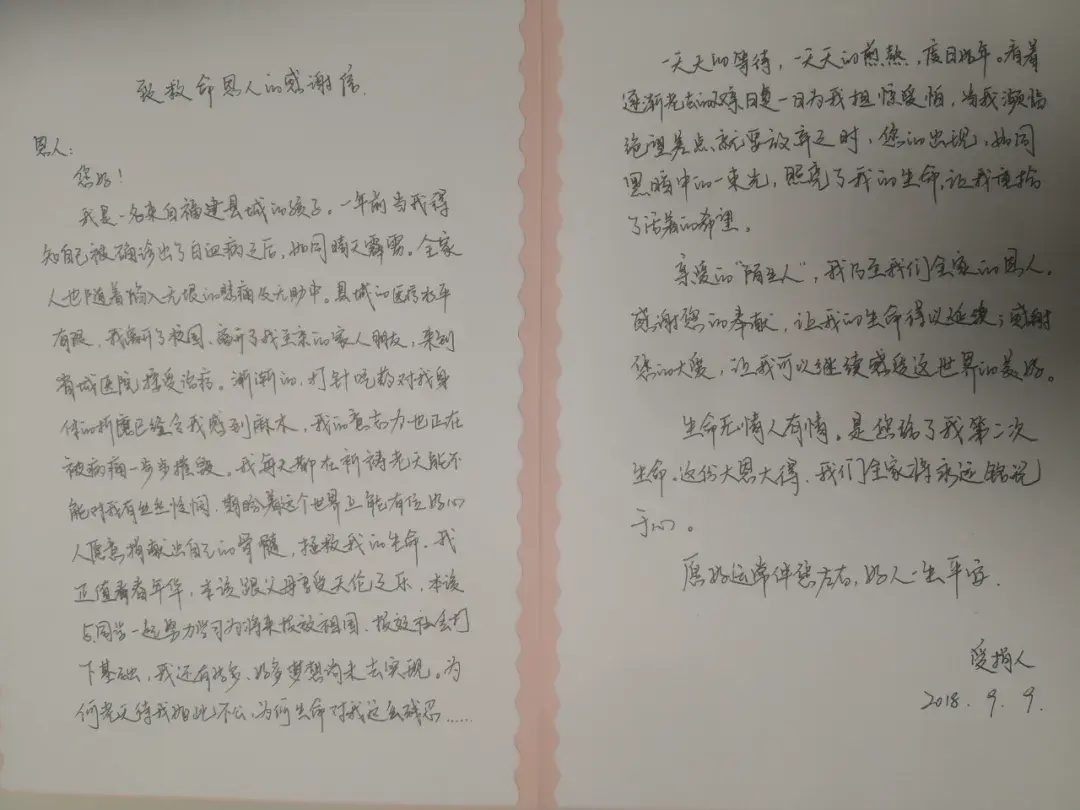 致救命恩人的感谢信.
恩人:
您好!
我是一名来自福建县城的孩子。一年前当我得
知自己被确诊出了白血病之后,如同晴天霹雳。全家
人也随着陷入无垠的悲痛及无助中。县城的医疗水平
有限,我离开了校园、离开了我至亲的家人朋友,来到
省城医院接受治疗。渐渐的,打针吃药对我身
体的折磨已经令我感到麻木,我的意志力也正在
被病痛一步步摧毁。我每天都在祈祷老天能不
能对我有丝丝怜悯,期盼着这个世界上能有位好心
人愿意捐献出自己的骨髓,拯救我的生命。我
正值青春年华,本该跟父母享受天伦之乐,本该
与同学一起努力学习为将来报效祖国、报效社会打
下基础,我还有好多、好多梦想尚未去实现。为
何老天待我如此不公,为何生命对我这么残忍……
一天天的等待,一天天的煎熬,度日如年。看着
逐渐老去的双亲日复一日为我担惊受怕,当我濒临
绝望差点就要放弃之时,您的出现,如同
黑暗中的一束光,照亮了我的生命,让我重拾
了活着的希望。
亲爱的“陌生人”,我乃至我们全家的恩人,
感谢您的奉献,让我的生命得以延续;感谢
您的大爱,让我可以继续感受这世界的美好。
生命无情人有情。是您给了我第二次
生命。这份大恩大得,我们全家将永远铭记
于心。
愿好运常伴您左右,好人一生平安.
受捐人
2018.9.9.